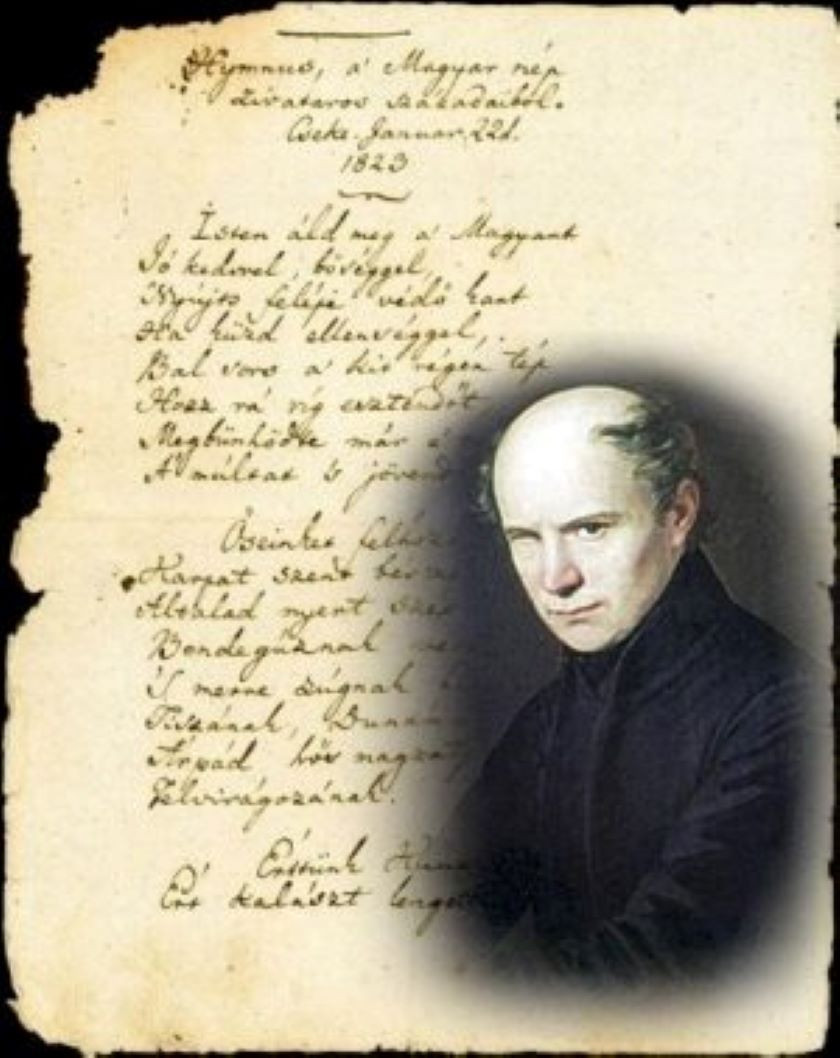 Hymnus, a' Magyar nép
zivataros századaiból.
Cseke. Januar. 22d.
1823
Isten áld meg a' Magyart
Jó kedvvel, bőséggel,
Nyújts feléje védő kart
Ha küzd ellenséggel,
Bal sors a' kit régen tép
Hozz rá víg esztendőt
Megbünhödte már a'
A' múltat 's jövend
Őseinket felhoz
Kárpát szent bérc
Általad nyert szép
Bendegúznak
'S merre zúgnak
Tiszának, Dunán
Árpád hős magzat
Felvirágozának.
Értünk Kuns
Ért kalászt lenget